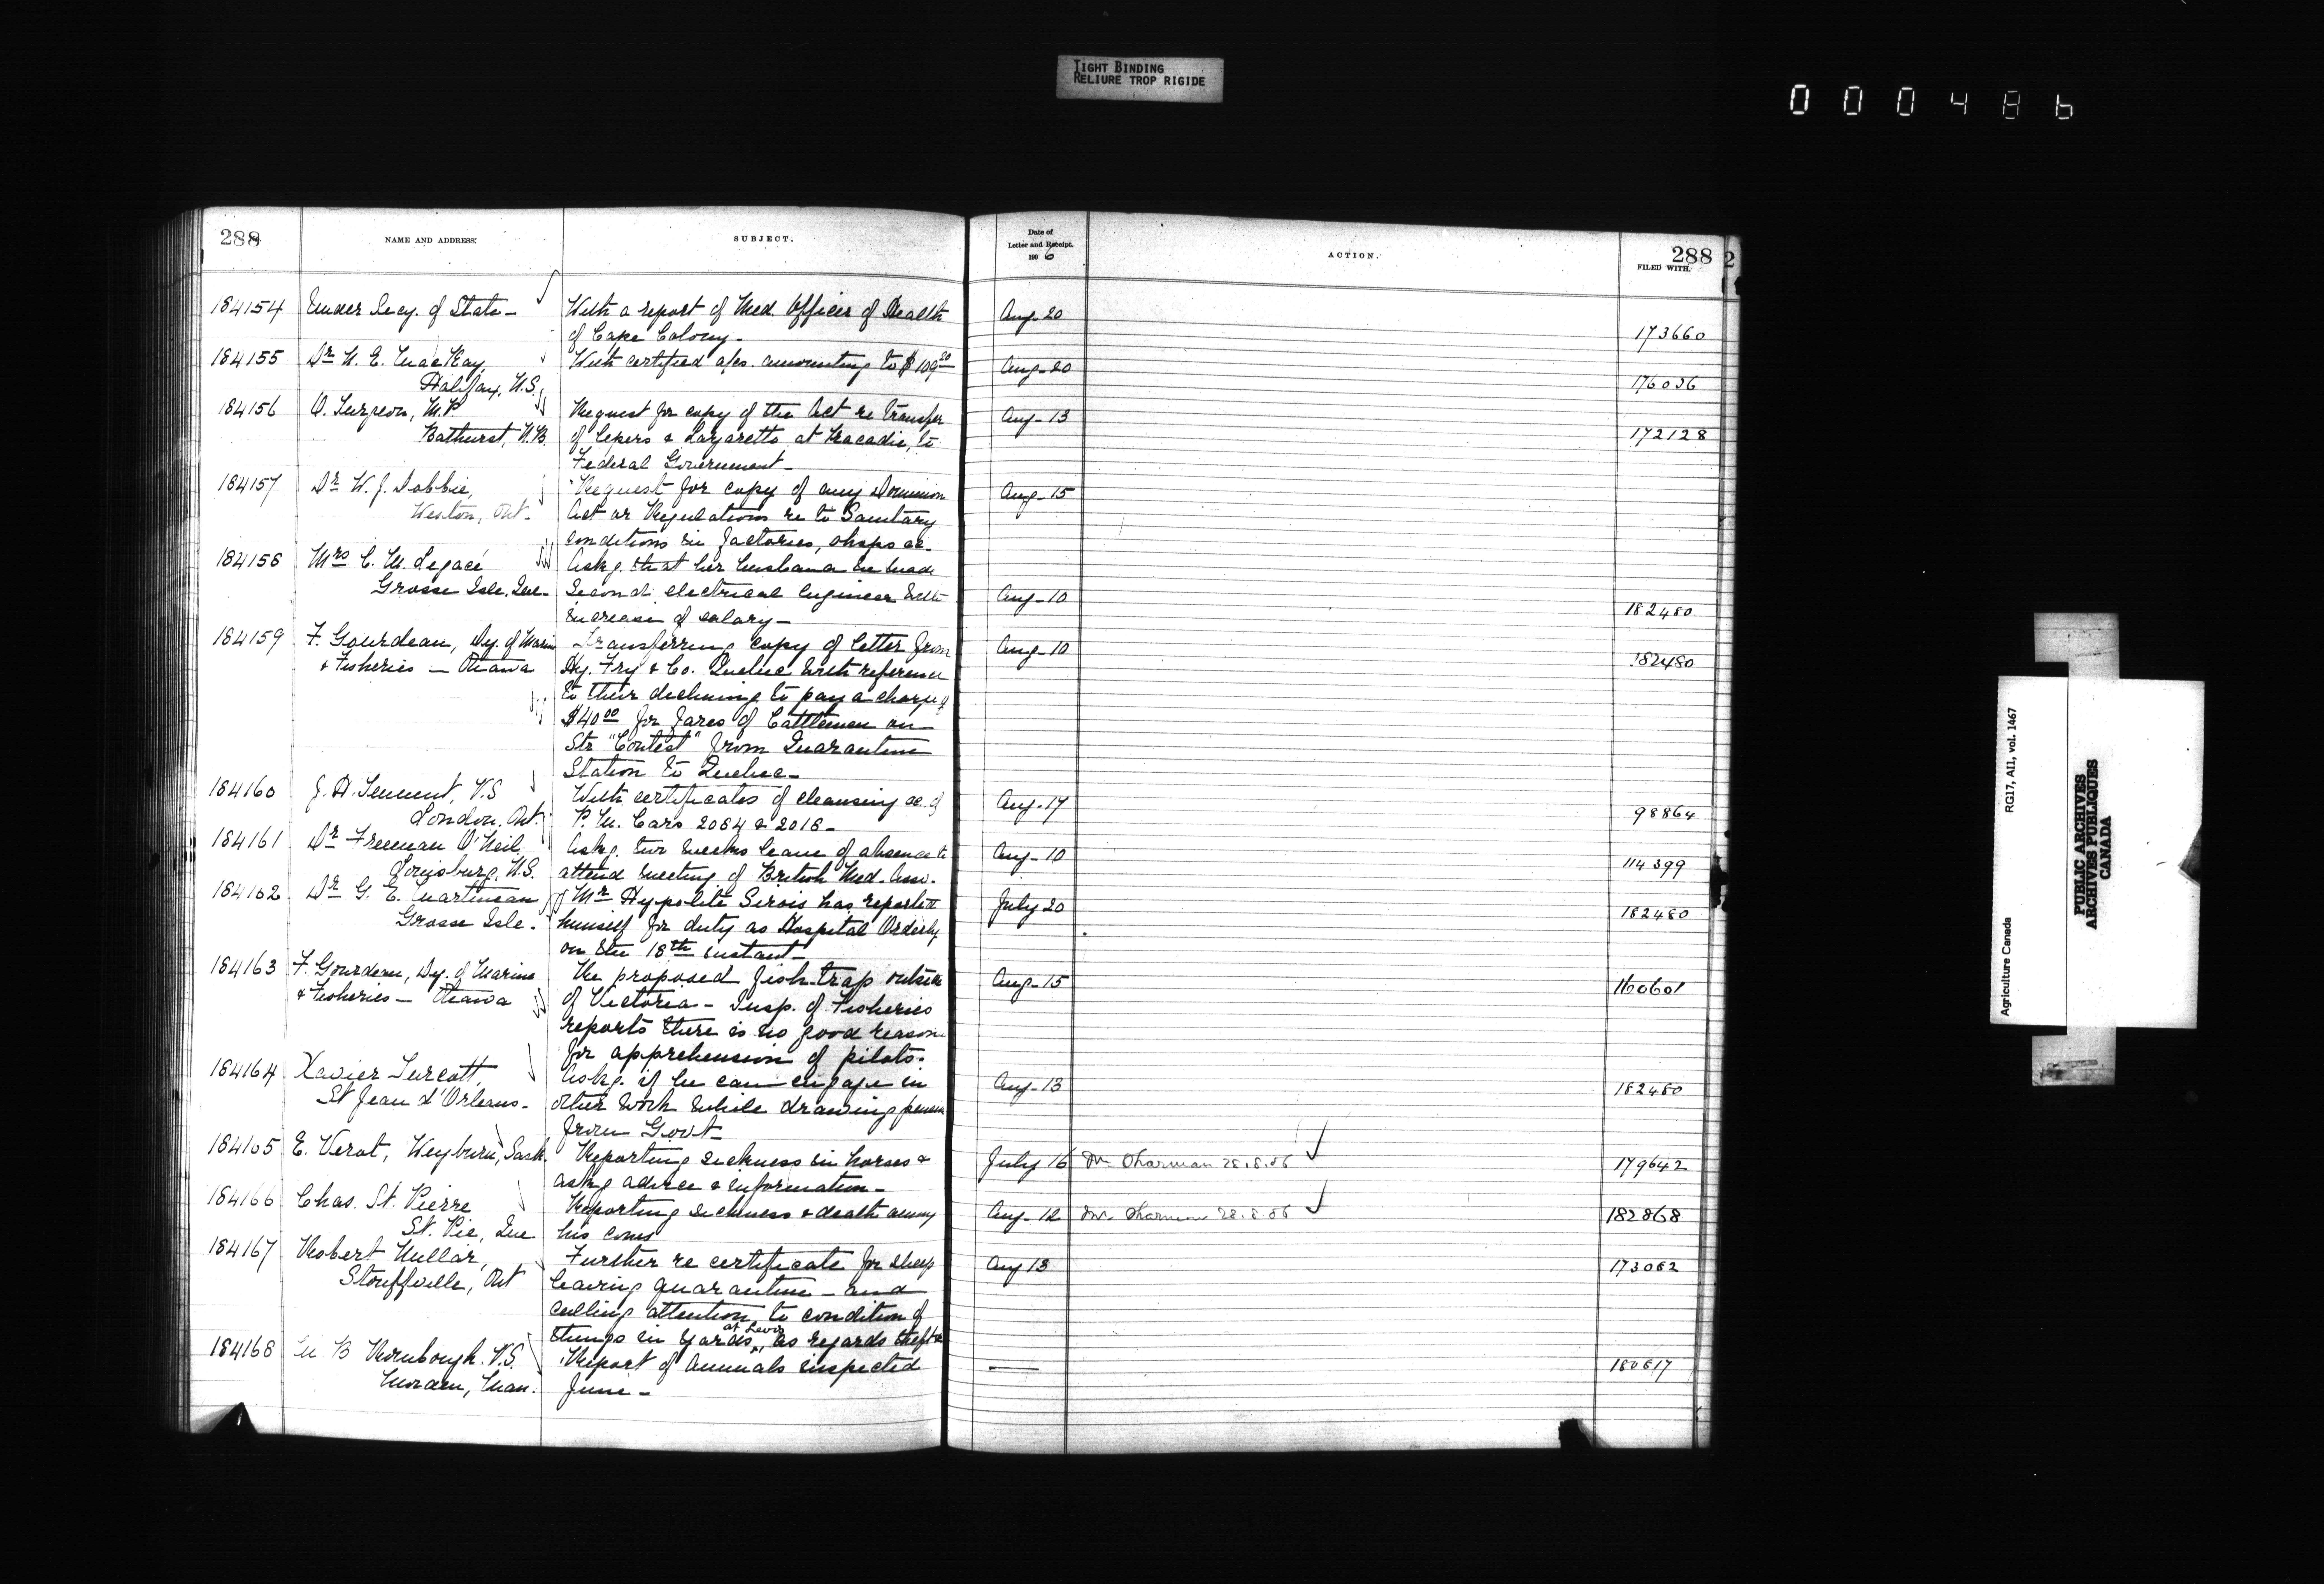 TIGHT BINDING
RELIURE TROP RIGIDE
000486
288
NAME AND ADDRESS.
SUBJECT.
Date of
Letter and Receipt.
1906
ACTION.
288
FILED WITH.
184154 Under Secy. of State - With a report of Med. Officer of Health Aug. 20
of Cape Colony - 173660
184155 Dr N. E. MacKay, With certified a/cs. amounting to $109.20 Aug. 20
Halifax, N.S. 176036
184156 O. Turgeon, M.P. Request for copy of the Act re transfer Aug. 13
Bathurst, N.B. of Lepers & Lazaretto at Tracadie, to 172128
Federal Government -
184157 Dr W. J. Dobbie, Request for copy of any Dominion Aug. 15
Weston, Ont. Act or Regulations re to Sanitary
conditions in factories, shops &c.
184158 Mrs C. M. Legacé Askg. that her husband be made
Grosse Isle, Que - Second electrical Engineer with Aug. 10
increase of salary - 182480
184159 F. Gourdeau, Dy. of Marine Transferring copy of letter from Aug. 10
& Fisheries - Ottawa Hy. Fry & Co. Quebec with reference 182480
to their declining to pay a charge of
$40.00 for fares of Cattlemen on
Str "Contest" from Quarantine
Station to Quebec -
184160 J. H. Tennent, V.S With certificates of cleansing &c. of Aug. 17
London, Ont. P. M. Cars 2084 & 2018 - 98864
184161 Dr Freeman O'Neil Askg. two weeks leave of absence to Aug. 10
Louisburg, N.S. attend meeting of British Med. Asso. 114399
184162 Dr G. E. Martineau Mr Hyppolite Sirois has reported July 20
Grosse Isle. himself for duty as Hospital Orderly 182480
on the 18th instant -
184163 F. Gourdeau, Dy. of Marine Re proposed fish trap outside Aug. 15
& Fisheries - Ottawa of Victoria - Insp. of Fisheries 160601
reports there is no good reason
for apprehension of pilots.
184164 Xavier Turcott, Askg. if he can engage in Aug. 13
St Jean d'Orleans - other work while drawing pension 182480
from Govt -
184165 E. Verot, Weyburn, Sask. Reporting sickness in horses & July 16 Dr. Sharman 28.8.06 179642
askg advice & information -
184166 Chas. St. Pierre Reporting sickness & death among Aug. 12 Dr. Sharman 28.8.06 182868
St. Pie, Que his cows
184167 Robert Millar, Further re certificate for sheep Aug 13 173062
Stouffville, Ont leaving quarantine - and
calling attention to condition of
things in yards at Levis, as regards theft &c
184168 M B Rombough. V.S. Report of Animals inspected — 180817
Morden, Man. June -
Agriculture Canada RG17, AII, vol. 1467
PUBLIC ARCHIVES
ARCHIVES PUBLIQUES
CANADA